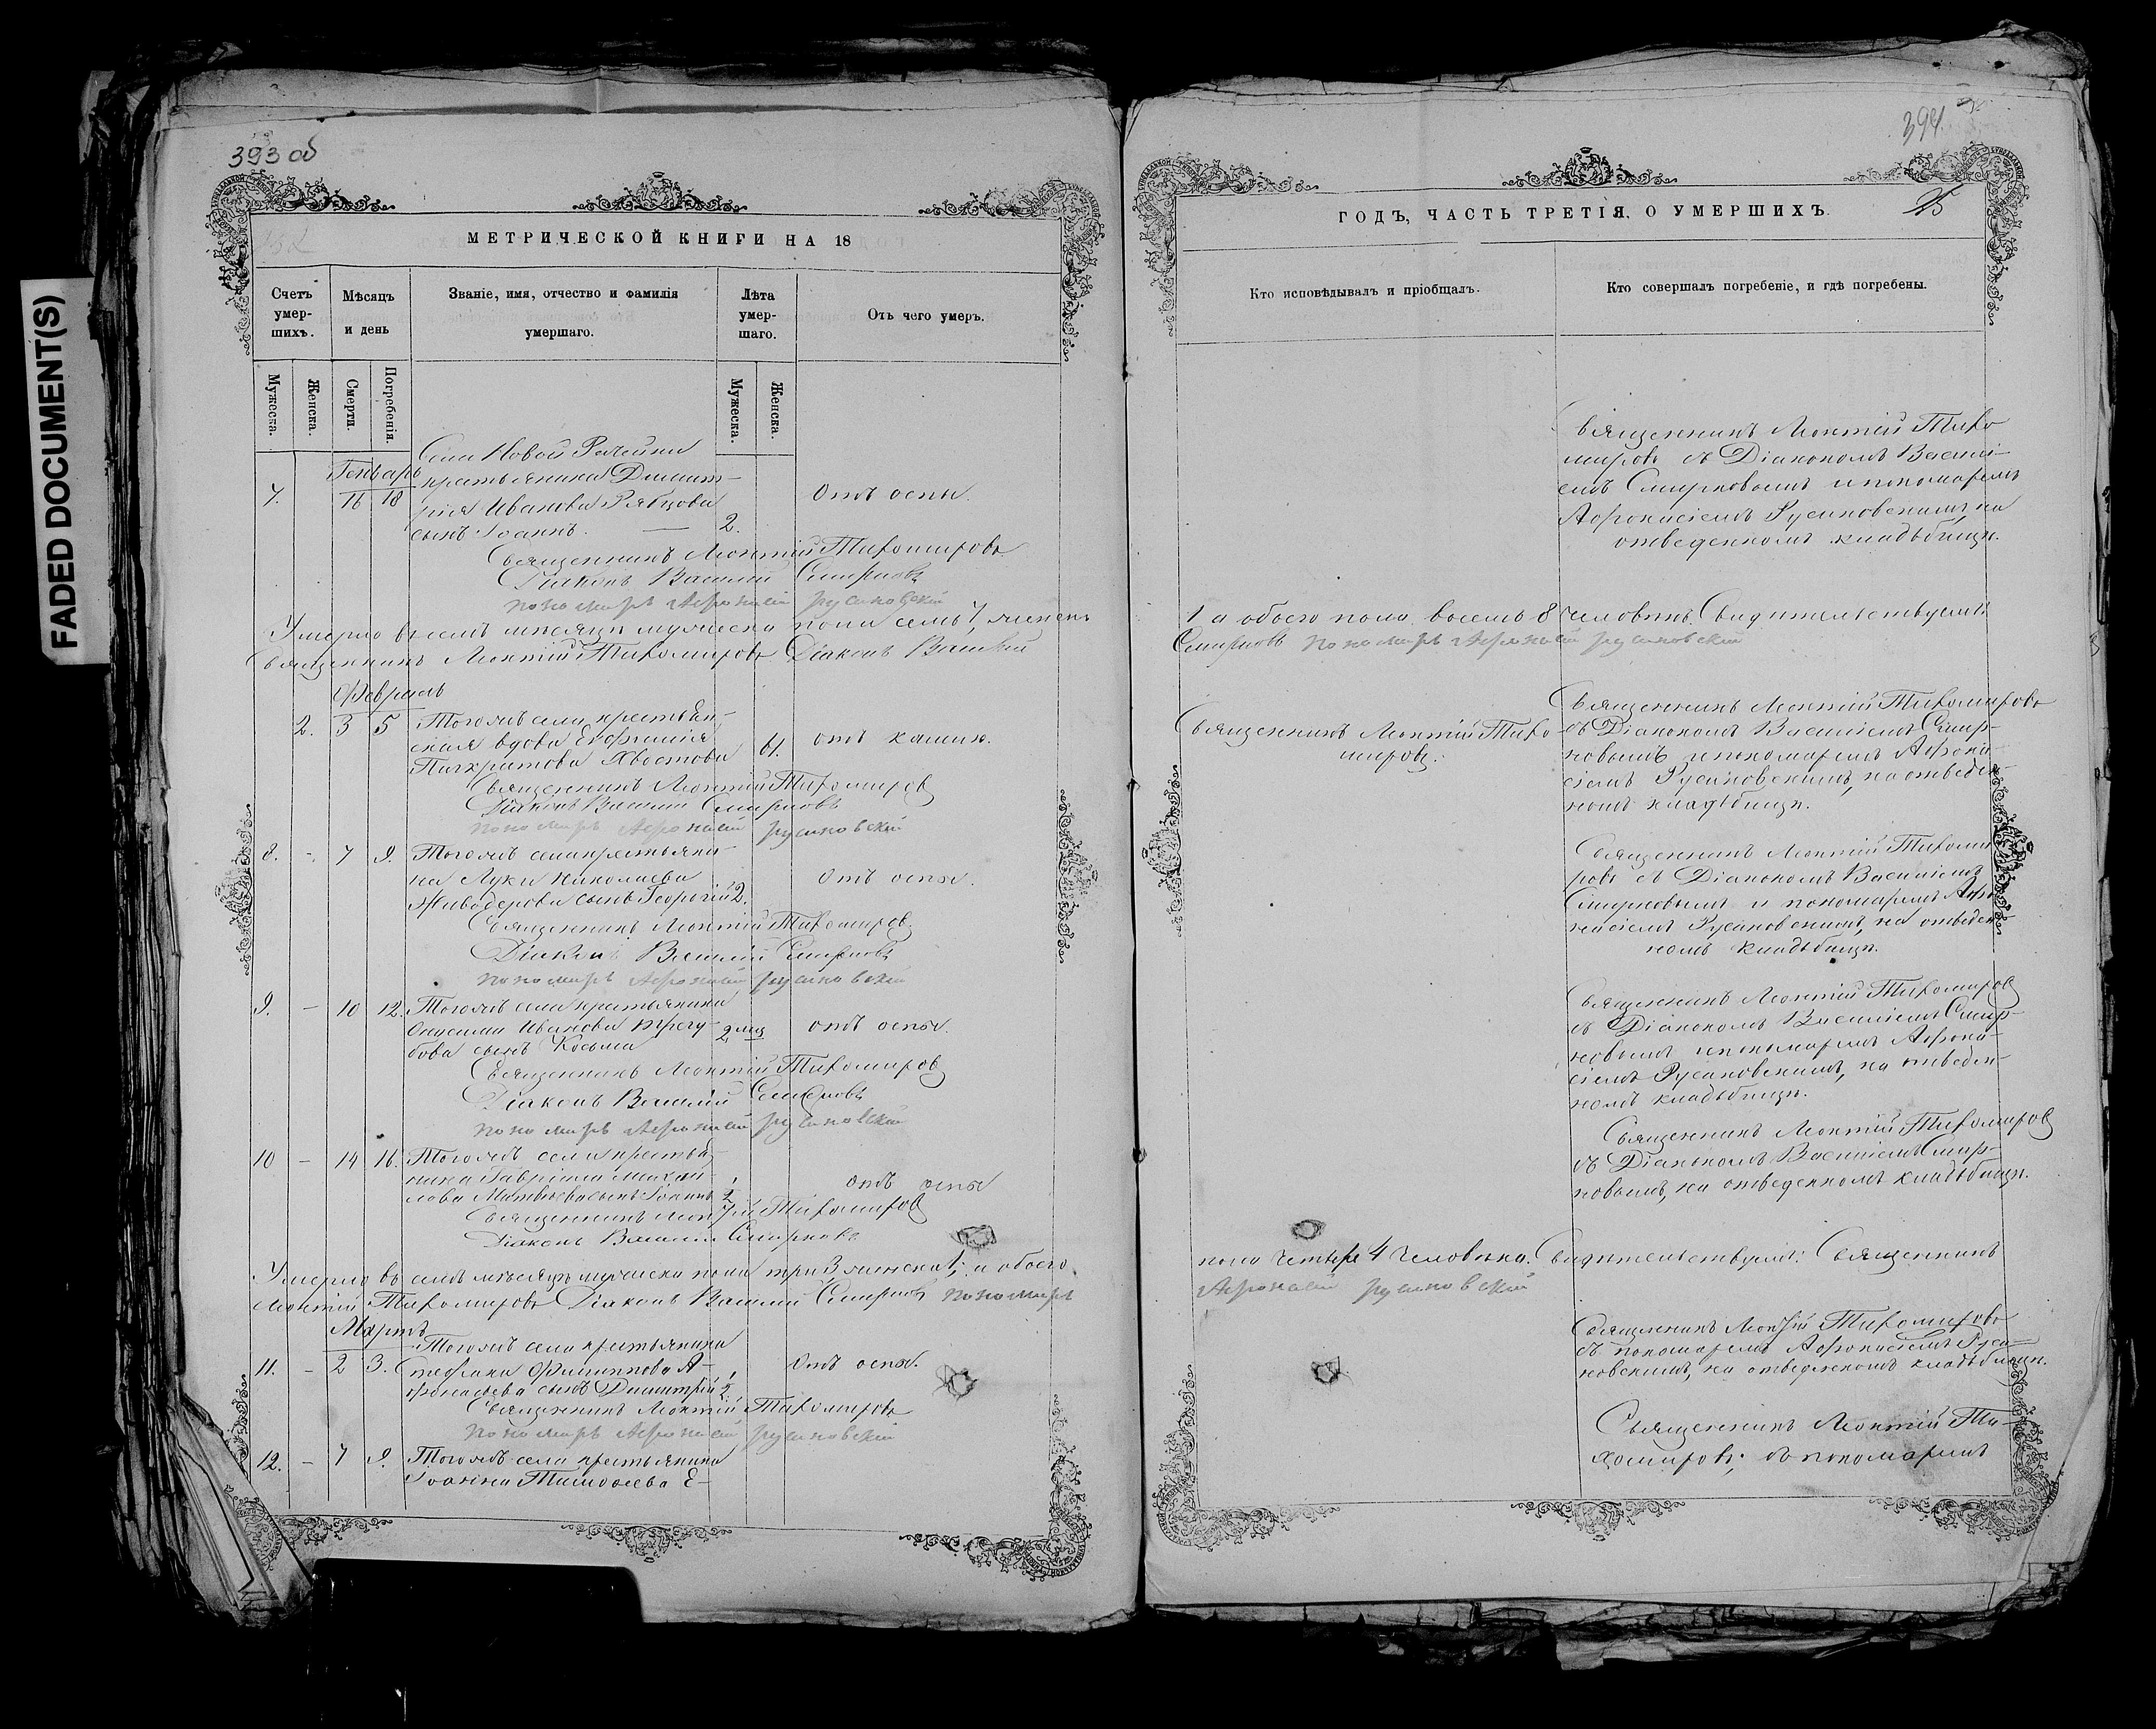 FADED DOCUMENT(S)
393 об
МЕТРИЧЕСКОЙ КНИГИ НА 18
Счетъ умер- шихъ.
Мѣсяцъ и день
Званіе, имя, отчество и фамилія умершаго.
Лѣта умер- шаго.
Отъ чего умеръ.
Мужеска.
Женска.
Смерти.
Погребенія.
Мужеска.
Женска.
Генварь
Села Новой Рачейки
7. 16 18 крестьянина Димит-
рія Иванова Рябцова
сынъ Іоаннъ. — 2. Отъ оспы.
Священникъ Леонтій Тихомировъ
Діаконъ Василій Смирновъ
пономарь Афонасій русановскій
Умерло въ семъ мѣсяцѣ мужеска пола семь 7, женска
Священникъ Леонтій Тихомировъ Діаконъ Василій
Февраль
2. 3 5 Тогожъ села крестьян-
ская вдова Евфимія
Панкратова Хвостова 61. отъ кашлю.
Священникъ Леонтій Тихомировъ
Діаконъ Василій Смирновъ
пономарь Афонасій русановскій
8. - 7 9. Тогожъ села крестьяни-
на Луки Николаева
Живодерова сынъ Георгій 2. Отъ оспы.
Священникъ Леонтій Тихомировъ
Діаконъ Василій Смирновъ
пономарь Афонасій русановскій
9. — 10 12. Тогожъ села крестьянина
Онисима Иванова Трегу-
бова сынъ Косьма 2 мц отъ оспы.
Священникъ Леонтій Тихомировъ
Діаконъ Василій Смирновъ
пономарь Афонасій русановскій
10 — 14 16. Тогожъ села крестья-
нина Гавріила Михай-
лова Матвѣева сынъ Іоаннъ отъ оспы
Священникъ Леонтій Тихомировъ
Діаконъ Василій Смирновъ
Умерло въ семъ мѣсяцѣ мужеска пола три 3 женска 1; а обоего
Леонтій Тихомировъ Діаконъ Василій Смирновъ пономарь
Мартъ
11. — 2 3. Тогожъ села крестьянина
Стефана Филиппова А-
фонасьева сынъ Димитрій Отъ оспы.
Священникъ Леонтій Тихомировъ
пономарь Афонасій русановскій
12. — 7 9. Тогожъ села крестьянина
Іоанна Тимофеева Е-
394
25
ГОДЪ, ЧАСТЬ ТРЕТІЯ, О УМЕРШИХЪ.
Кто исповѣдывалъ и пріобщалъ.
Кто совершалъ погребеніе, и гдѣ погребены.
Священникъ Леонтій Тихо
мировъ съ Діакономъ Васи-
емъ Смирновымъ и пономаремъ
Афонасіемъ Русановскимъ, на
отведенномъ кладбищѣ.
1 а обоего пола восемь 8 человѣкъ. Свидѣтельствуемъ:
Смирновъ пономарь Афонасій русановскій
Священникъ Леонтій Тихо-
мировъ.
Священникъ Леонтій Тихомировъ
съ Діакономъ Василіемъ Смир-
новымъ и пономаремъ Афона-
сіемъ Русановскимъ, на отведен-
номъ кладбищѣ.
Священникъ Леонтій Тихоми-
ровъ съ Діакономъ Василіемъ
Смирновымъ и пономаремъ Афо-
насіемъ Русановскимъ, на отведен-
номъ кладбищѣ.
Священникъ Леонтій Тихомировъ
съ Діакономъ Василіемъ Смир-
новымъ и пономаремъ Афона-
сіемъ Русановскимъ, на отведен-
номъ кладбищѣ.
Священникъ Леонтій Тихомировъ
съ Діакономъ Василіемъ Смир-
новымъ, на отведенномъ кладбищѣ.
пола четыре 4 человѣка. Свидѣтельствуемъ: Священникъ
Афонасій русановскій
Священникъ Леонтій Тихомировъ
съ пономаремъ Афонасіемъ Руса-
новскимъ, на отведенномъ кладбищѣ.
Священникъ Леонтій Ти-
хомировъ; съ пономаремъ